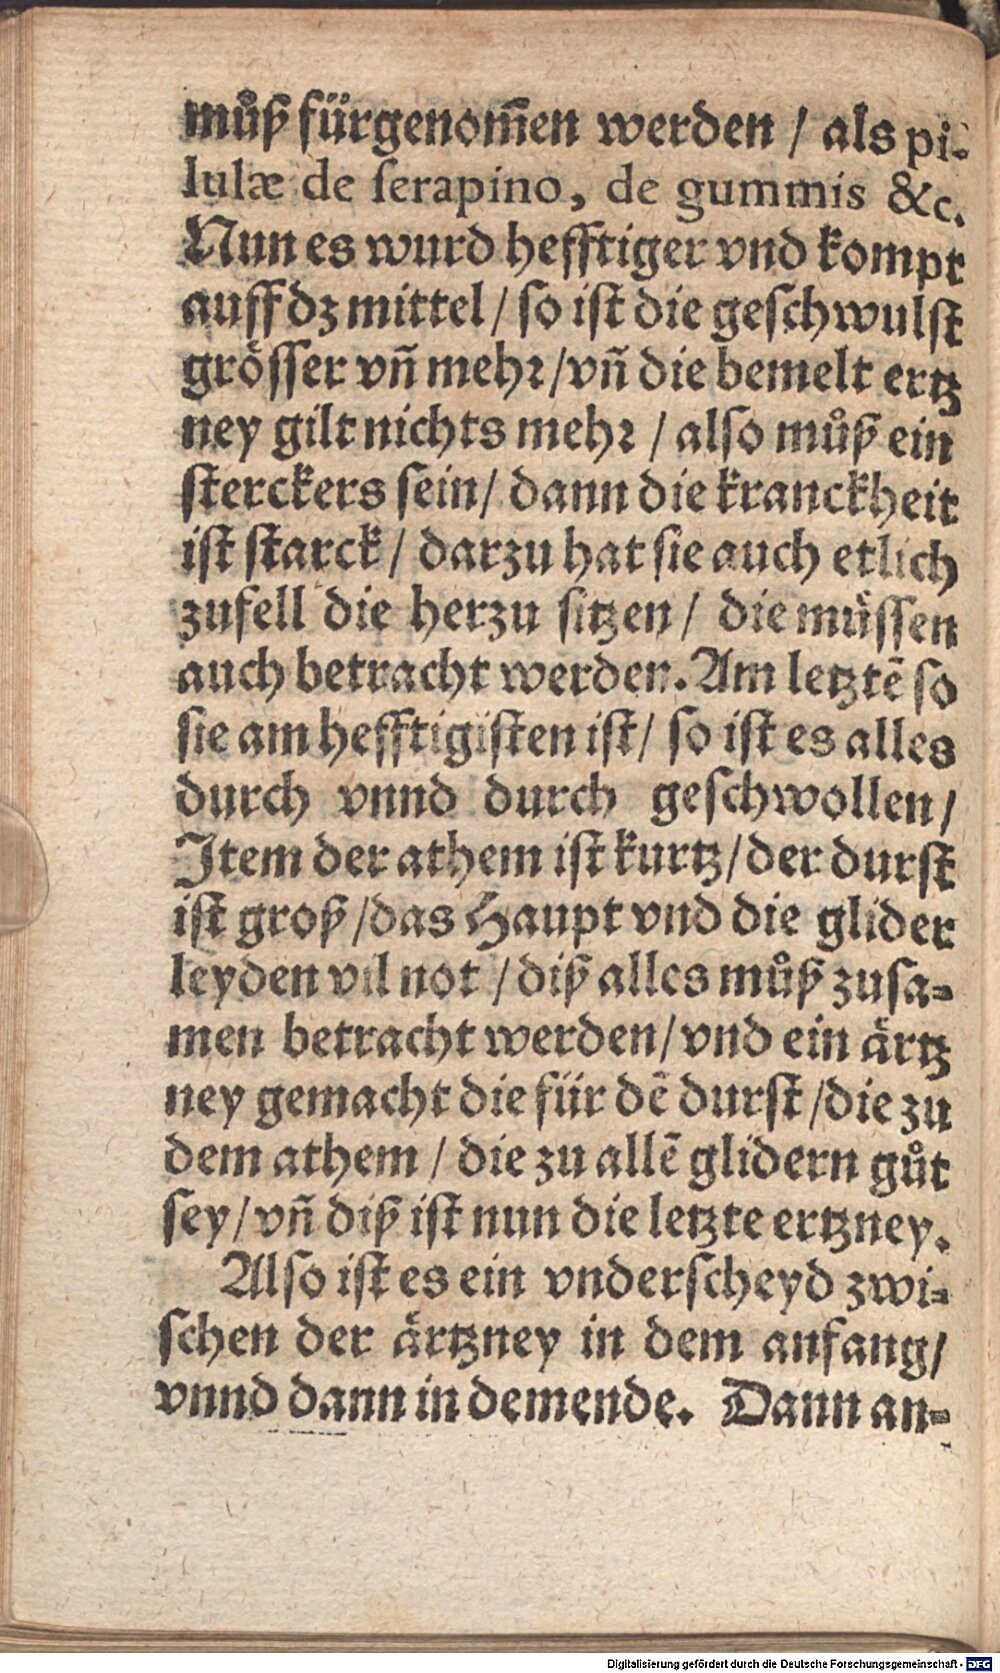 můß fürgenom̃en werden / als pi-
lulæ de ſerapino, de gummis &c.
Nun es wurd hefftiger vnd kompt
auff dz mittel / ſo iſt die geſchwulſt
gröſſer vñ mehꝛ / vñ die bemelt ertz
ney gilt nichts mehꝛ / alſo můß ein
ſterckers ſein / dann die kranckheit
iſt ſtarck / darzu hat ſie auch etlich
zufell die herzu ſitzen / die müſſen
auch betracht werden. Am letztē ſo
ſie am hefftigiſten iſt / ſo iſt es alles
durch vnnd durch geſchwollen /
Item der athem iſt kurtz / der durſt
iſt groß / das Haupt vnd die glider
leyden vil not / diß alles můß zuſa-
men betracht werden / vnd ein ärtz
ney gemacht die für dē durſt / die zu
dem athem / die zu allē glidern gůt
ſey / vñ diß iſt nun die letzte ertzney.
Alſo iſt es ein vnderſcheyd zwi-
ſchen der ärtzney in dem anfang /
vnnd dann in dem ende. Dann an-
Digitalisierung gefördert durch die Deutsche Forschungsgemeinschaft - DFG